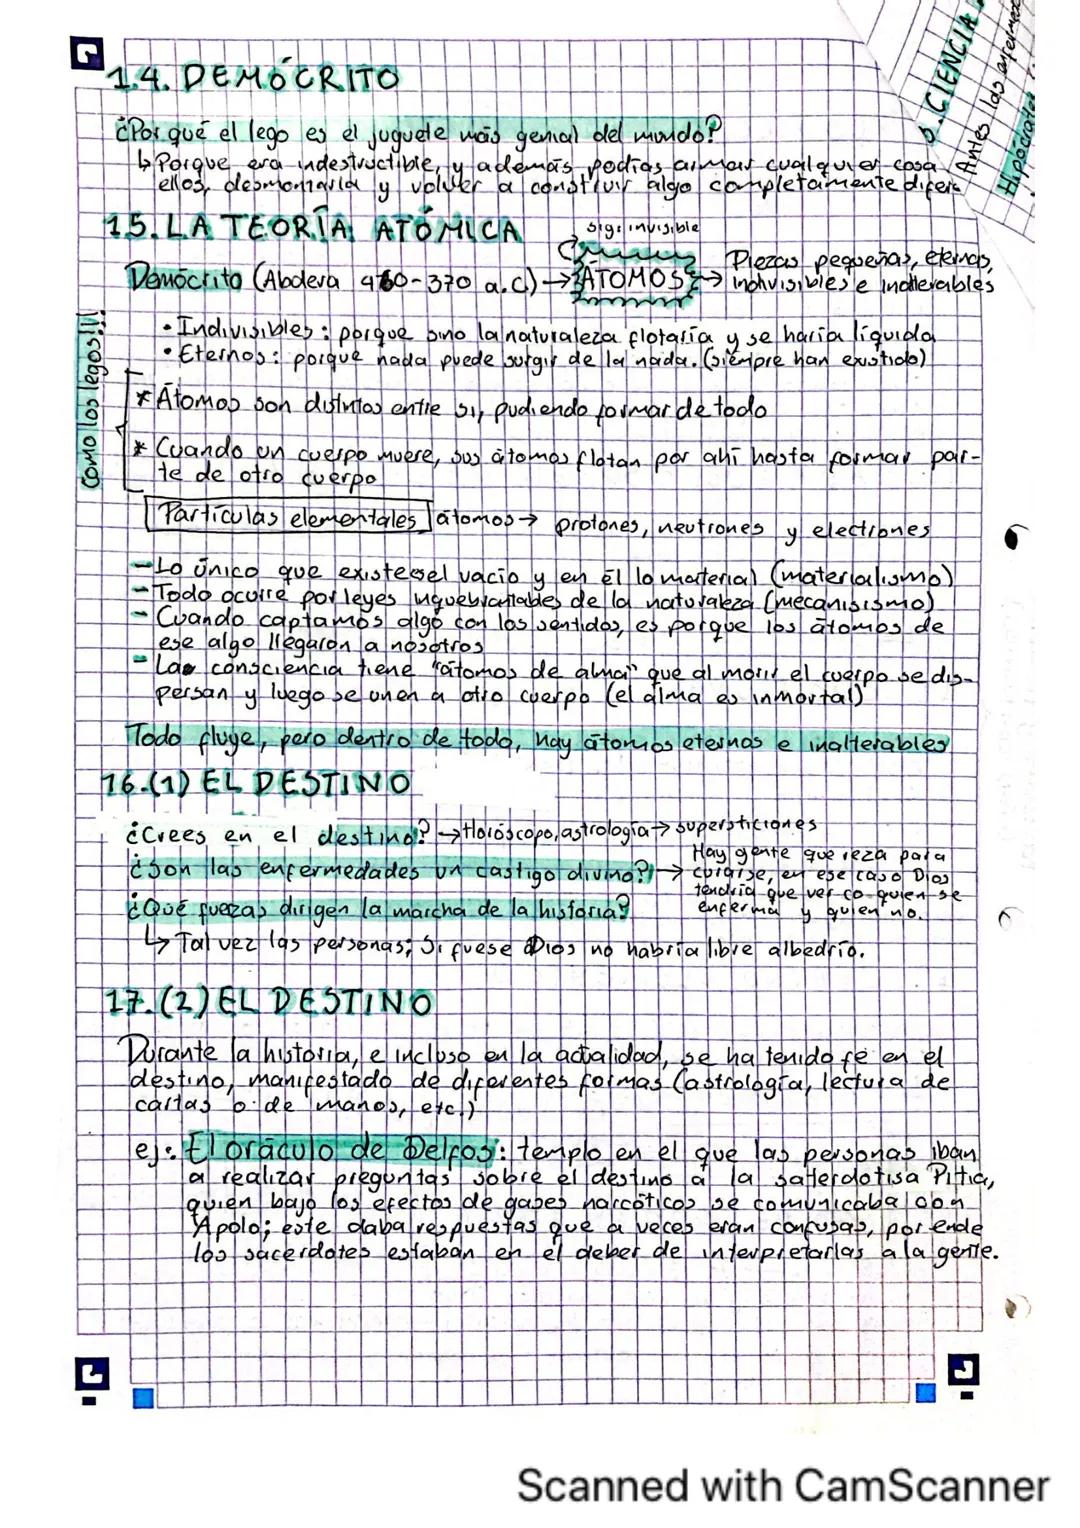 14. DEMÓCRITO
¿Por qué el lego es el juguete más genial del mundo?
↳ Porque era indestructible, y además podías armar cualquier cosa
ellos, desmontarla y volver a construir algo completamente difere
15. LA TEORÍA ATÓMICA
sig: invisible
Demócrito (Abdera 460-370 a.C) → ÁTOMOS → Piezas pequeñas, eternas,
indivisibles e inalterables
• Indivisibles: porque sino la naturaleza flotaría y se haría líquida
• Eternos: porque nada puede surgir de la nada. (siempre han existido)
Como los legos!!!
* Átomos son distintos entre sí, pudiendo formar de todo
* Cuando un cuerpo muere, sus átomos flotan por ahí hasta formar par-
te de otro cuerpo
Partículas elementales átomos → protones, neutrones y electrones
- Lo único que existe es el vacío y en él lo material (materialismo)
- Todo ocurre por leyes inquebrantables de la naturaleza (mecanisismo)
- Cuando captamos algo con los sentidos, es porque los átomos de
ese algo llegaron a nosotros
- La consciencia tiene "átomos de alma" que al morir el cuerpo se dis-
persan y luego se unen a otro cuerpo (el alma es inmortal)
Todo fluye, pero dentro de todo, hay átomos eternos e inalterables
16.(1) EL DESTINO
¿Crees en el destino? → Horóscopo, astrología → supersticiones
¿Son las enfermedades un castigo divino? → Hay gente que reza para
curarse, en ese caso Dios
tendría que ver co quien se
enferma y quien no.
¿Qué fuezas dirigen la marcha de la historia?
↳ Tal vez las personas; Si fuese Dios no habría libre albedrío.
17.(2) EL DESTINO
Durante la historia, e incluso en la actualidad, se ha tenido fe en el
destino, manifestado de diferentes formas (astrología, lectura de
cartas o de manos, etc.)
ej: El oráculo de Delfos: templo en el que las personas iban
a realizar preguntas sobre el destino a la saferdotisa Pitia,
quien bajo los efectos de gases narcóticos se comunicaba con
Apolo; este daba respuestas que a veces eran confusas, por ende
los sacerdotes estaban en el deber de interpretarlas a la gente.
CIENCIA
Antes las enfermed
Hipócrates
Scanned with CamScanner